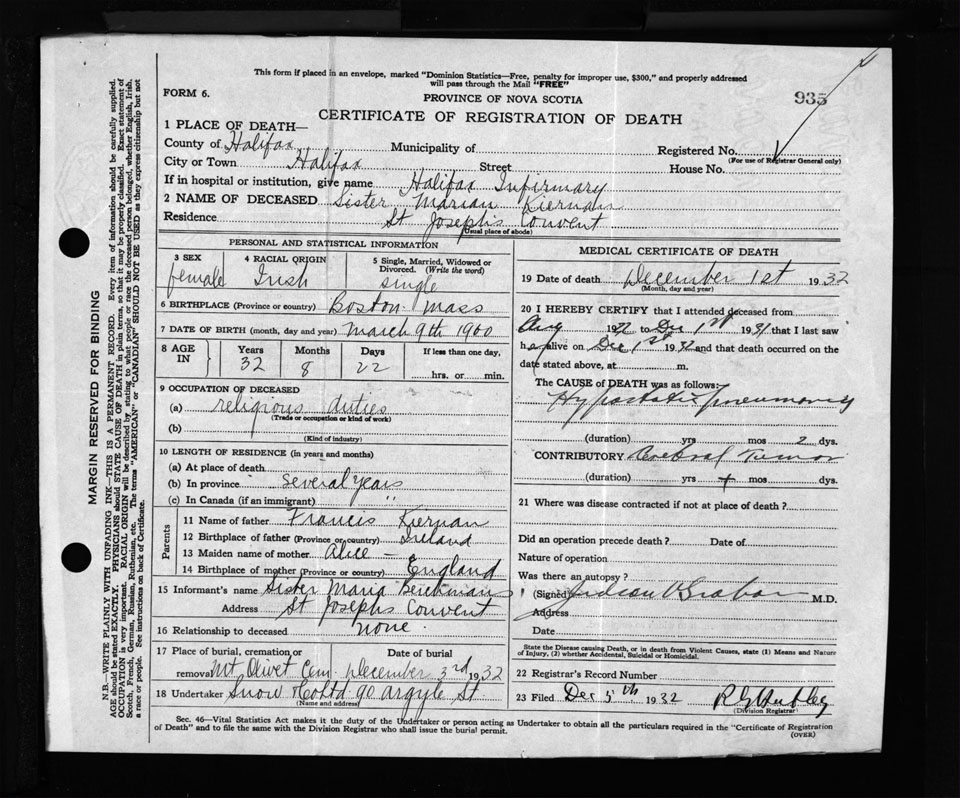 This form if placed in an envelope, marked "Dominion Statistics—Free, penalty for improper use, $300," and properly addressed
will pass through the Mail "FREE"
FORM 6.
PROVINCE OF NOVA SCOTIA
935
CERTIFICATE OF REGISTRATION OF DEATH
1 PLACE OF DEATH—
County of Halifax Municipality of Registered No.
(For use of Registrar General only)
City or Town Halifax Street House No.
If in hospital or institution, give name Halifax Infirmary
2 NAME OF DECEASED Sister Marian Kiernan
Residence St Joseph's Convent
(Usual place of abode)
PERSONAL AND STATISTICAL INFORMATION
3 SEX 4 RACIAL ORIGIN 5 Single, Married, Widowed or
Divorced. (Write the word)
female Irish single
6 BIRTHPLACE (Province or country) Boston Mass
7 DATE OF BIRTH (month, day and year) March 9th 1900
8 AGE IN Years Months Days If less than one day,
32 8 22 hrs. or min.
9 OCCUPATION OF DECEASED
(a) religious duties
(Trade or occupation or kind of work)
(b)
(Kind of industry)
10 LENGTH OF RESIDENCE (in years and months)
(a) At place of death
(b) In province several years
(c) In Canada (if an immigrant) " "
Parents
11 Name of father Francis Kiernan
12 Birthplace of father (Province or country) Ireland
13 Maiden name of mother Alice —
14 Birthplace of mother (Province or country) England
15 Informant's name Sister Maria Beickmans
Address St Josephs Convent
16 Relationship to deceased none.
17 Place of burial, cremation or Date of burial
removal Mt Olivet Cem December 3rd 1932
18 Undertaker Snow & Co Ltd 90 Argyle St
(Name and address)
MEDICAL CERTIFICATE OF DEATH
19 Date of death December 1st 1932
(Month, day and year)
20 I HEREBY CERTIFY that I attended deceased from
Aug 1922 to Dec 1st 1931 that I last saw
h er alive on Dec 1st 1932 and that death occurred on the
date stated above, at m.
The CAUSE of DEATH was as follows:
Hypostatic pneumonia
(duration) yrs mos 2 dys.
CONTRIBUTORY Cerebral Tumor
(duration) yrs + mos dys.
21 Where was disease contracted if not at place of death?
Did an operation precede death? Date of
Nature of operation
Was there an autopsy?
(Signed) Judson V Graham M.D.
Address
Date
State the Disease causing Death, or in death from Violent Causes, state (1) Means and Nature
of Injury, (2) whether Accidental, Suicidal or Homicidal.
22 Registrar's Record Number
23 Filed Dec 5th 1932
(Division Registrar)
Sec. 46—Vital Statistics Act makes it the duty of the Undertaker or person acting as Undertaker to obtain all the particulars required in the "Certificate of Registration
of Death" and to file the same with the Division Registrar who shall issue the burial permit.
(OVER)
MARGIN RESERVED FOR BINDING
N.B.—WRITE PLAINLY WITH UNFADING INK—THIS IS A PERMANENT RECORD. Every item of information should be carefully supplied.
AGE should be stated EXACTLY. PHYSICIANS should STATE CAUSE OF DEATH in plain terms, so that it may be properly classified. Exact statement of
OCCUPATION is very important. RACIAL ORIGIN will be described by stating to what people or race the deceased person belonged, whether English, Irish,
Scotch, French, German, Russian, Ruthenian, etc. The terms "AMERICAN" or "CANADIAN" SHOULD NOT BE USED as they express citizenship but not
a race or people. See instructions on back of Certificate.